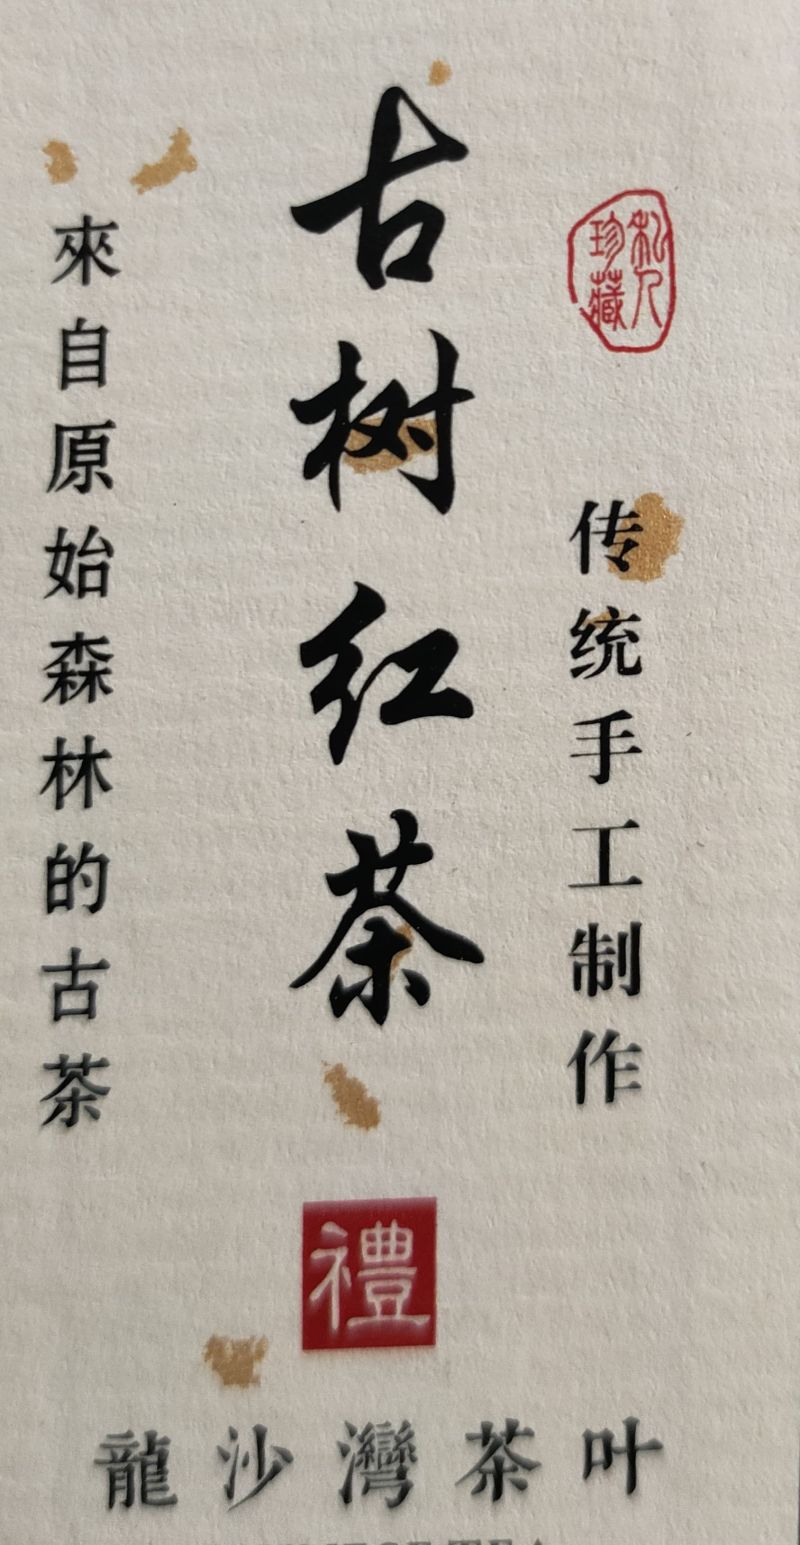 私人
珍藏
传统手工制作
古树红茶
來自原始森林的古茶
禮
龍沙灣茶叶